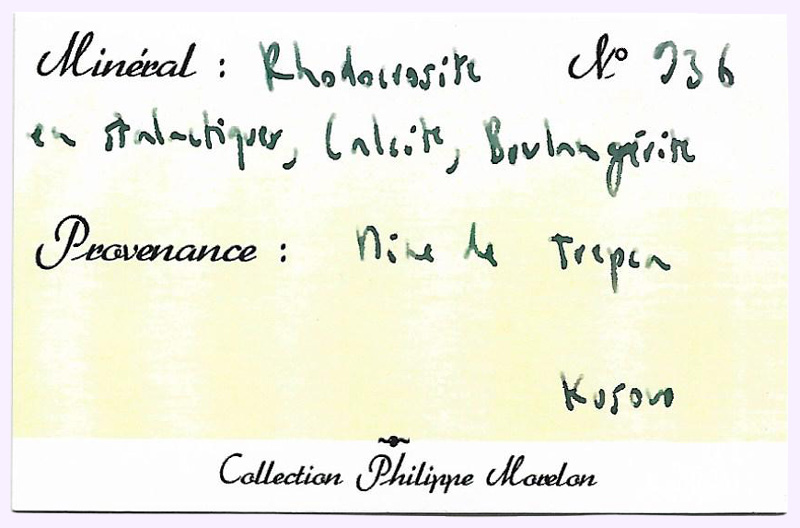 Minéral : Rhodocrosite N° 936
en stalactiques, Calcite, Boulangérite
Provenance : Mine de Trepca
Kosovo
Collection Philippe Morelon